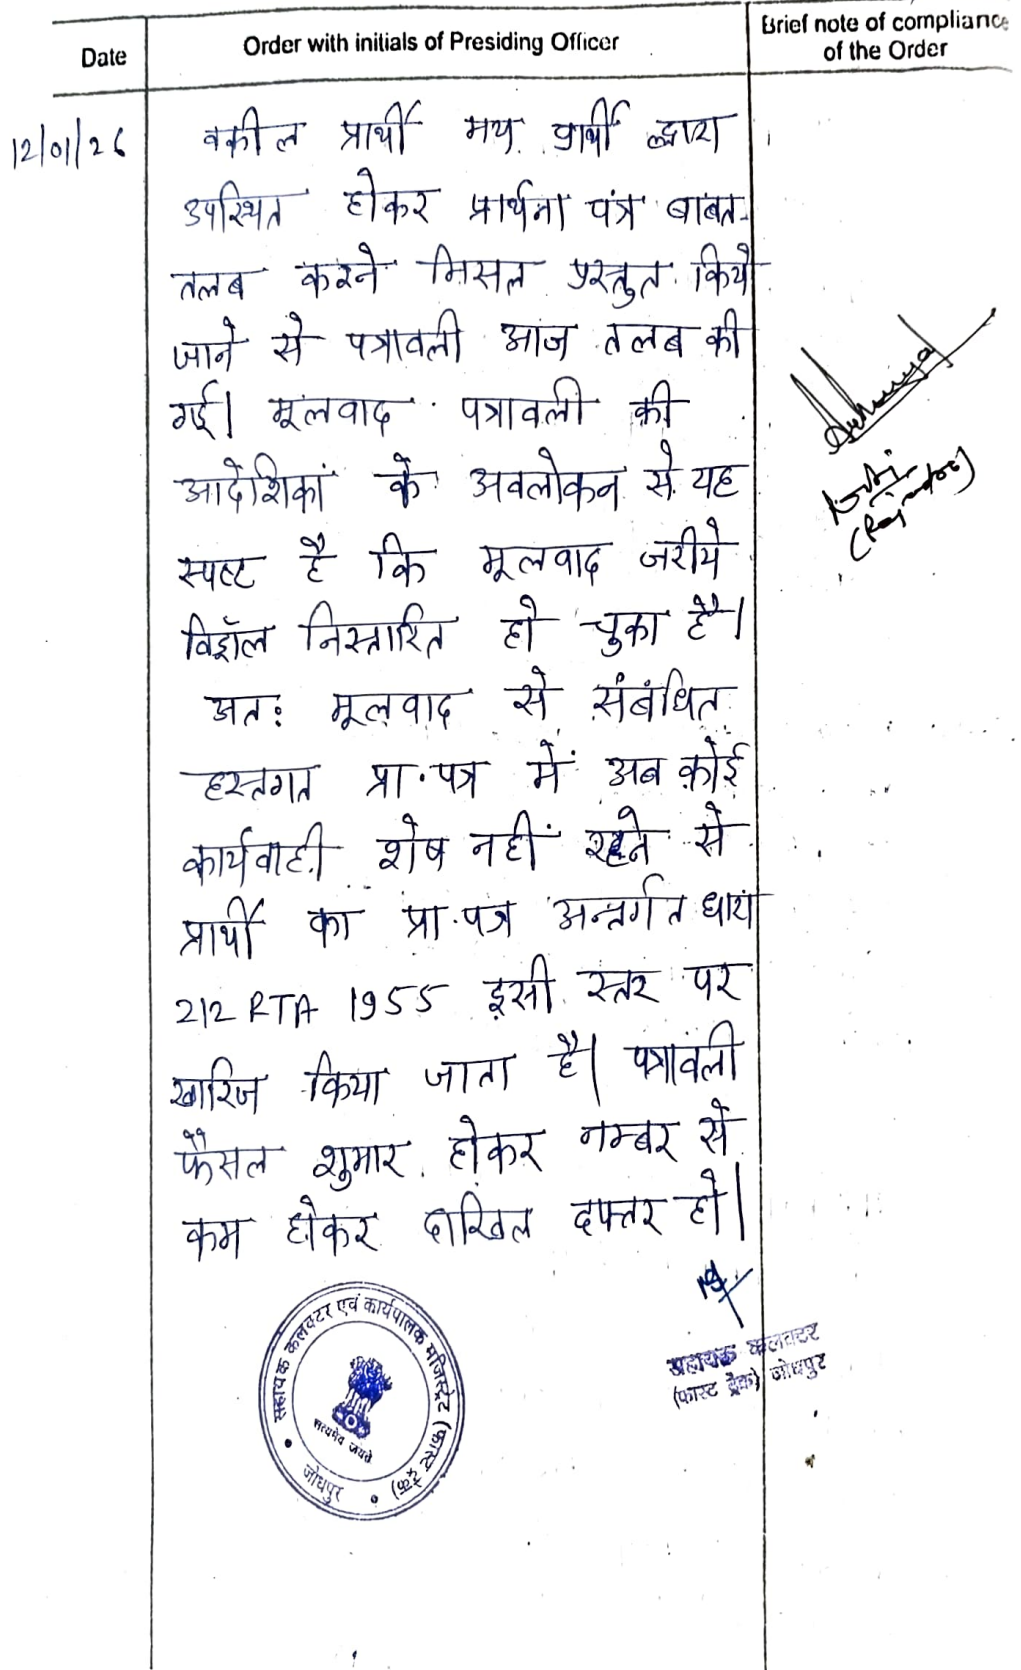 Date
Order with initials of Presiding Officer
Brief note of compliance
of the Order
12/01/26
वकील प्रार्थी मय प्रार्थी द्वारा
उपस्थित होकर प्रार्थना पत्र बाबत
तलब करने मिसल प्रस्तुत किये
जाने से पत्रावली आज तलब की
गई। मूलवाद पत्रावली की
आदेशिकां के अवलोकन से यह
स्पष्ट है कि मूलवाद जरीये
विड्रॉल निस्तारित हो चुका है।
अतः मूलवाद से संबंधित
हस्तगत प्रा.पत्र में अब कोई
कार्यवाही शेष नहीं रहने से
प्रार्थी का प्रा.पत्र अन्तर्गत धारा
212 RTA 1955 इसी स्तर पर
खारिज किया जाता है। पत्रावली
फैसल शुमार होकर नम्बर से
कम होकर दाखिल दफ्तर हो।
सहायक कलक्टर
(फास्ट ट्रेक) जोधपुर
सहायक कलक्टर एवं कार्यपालक मजिस्ट्रेट (फास्ट ट्रेक)
सत्यमेव जयते
जोधपुर